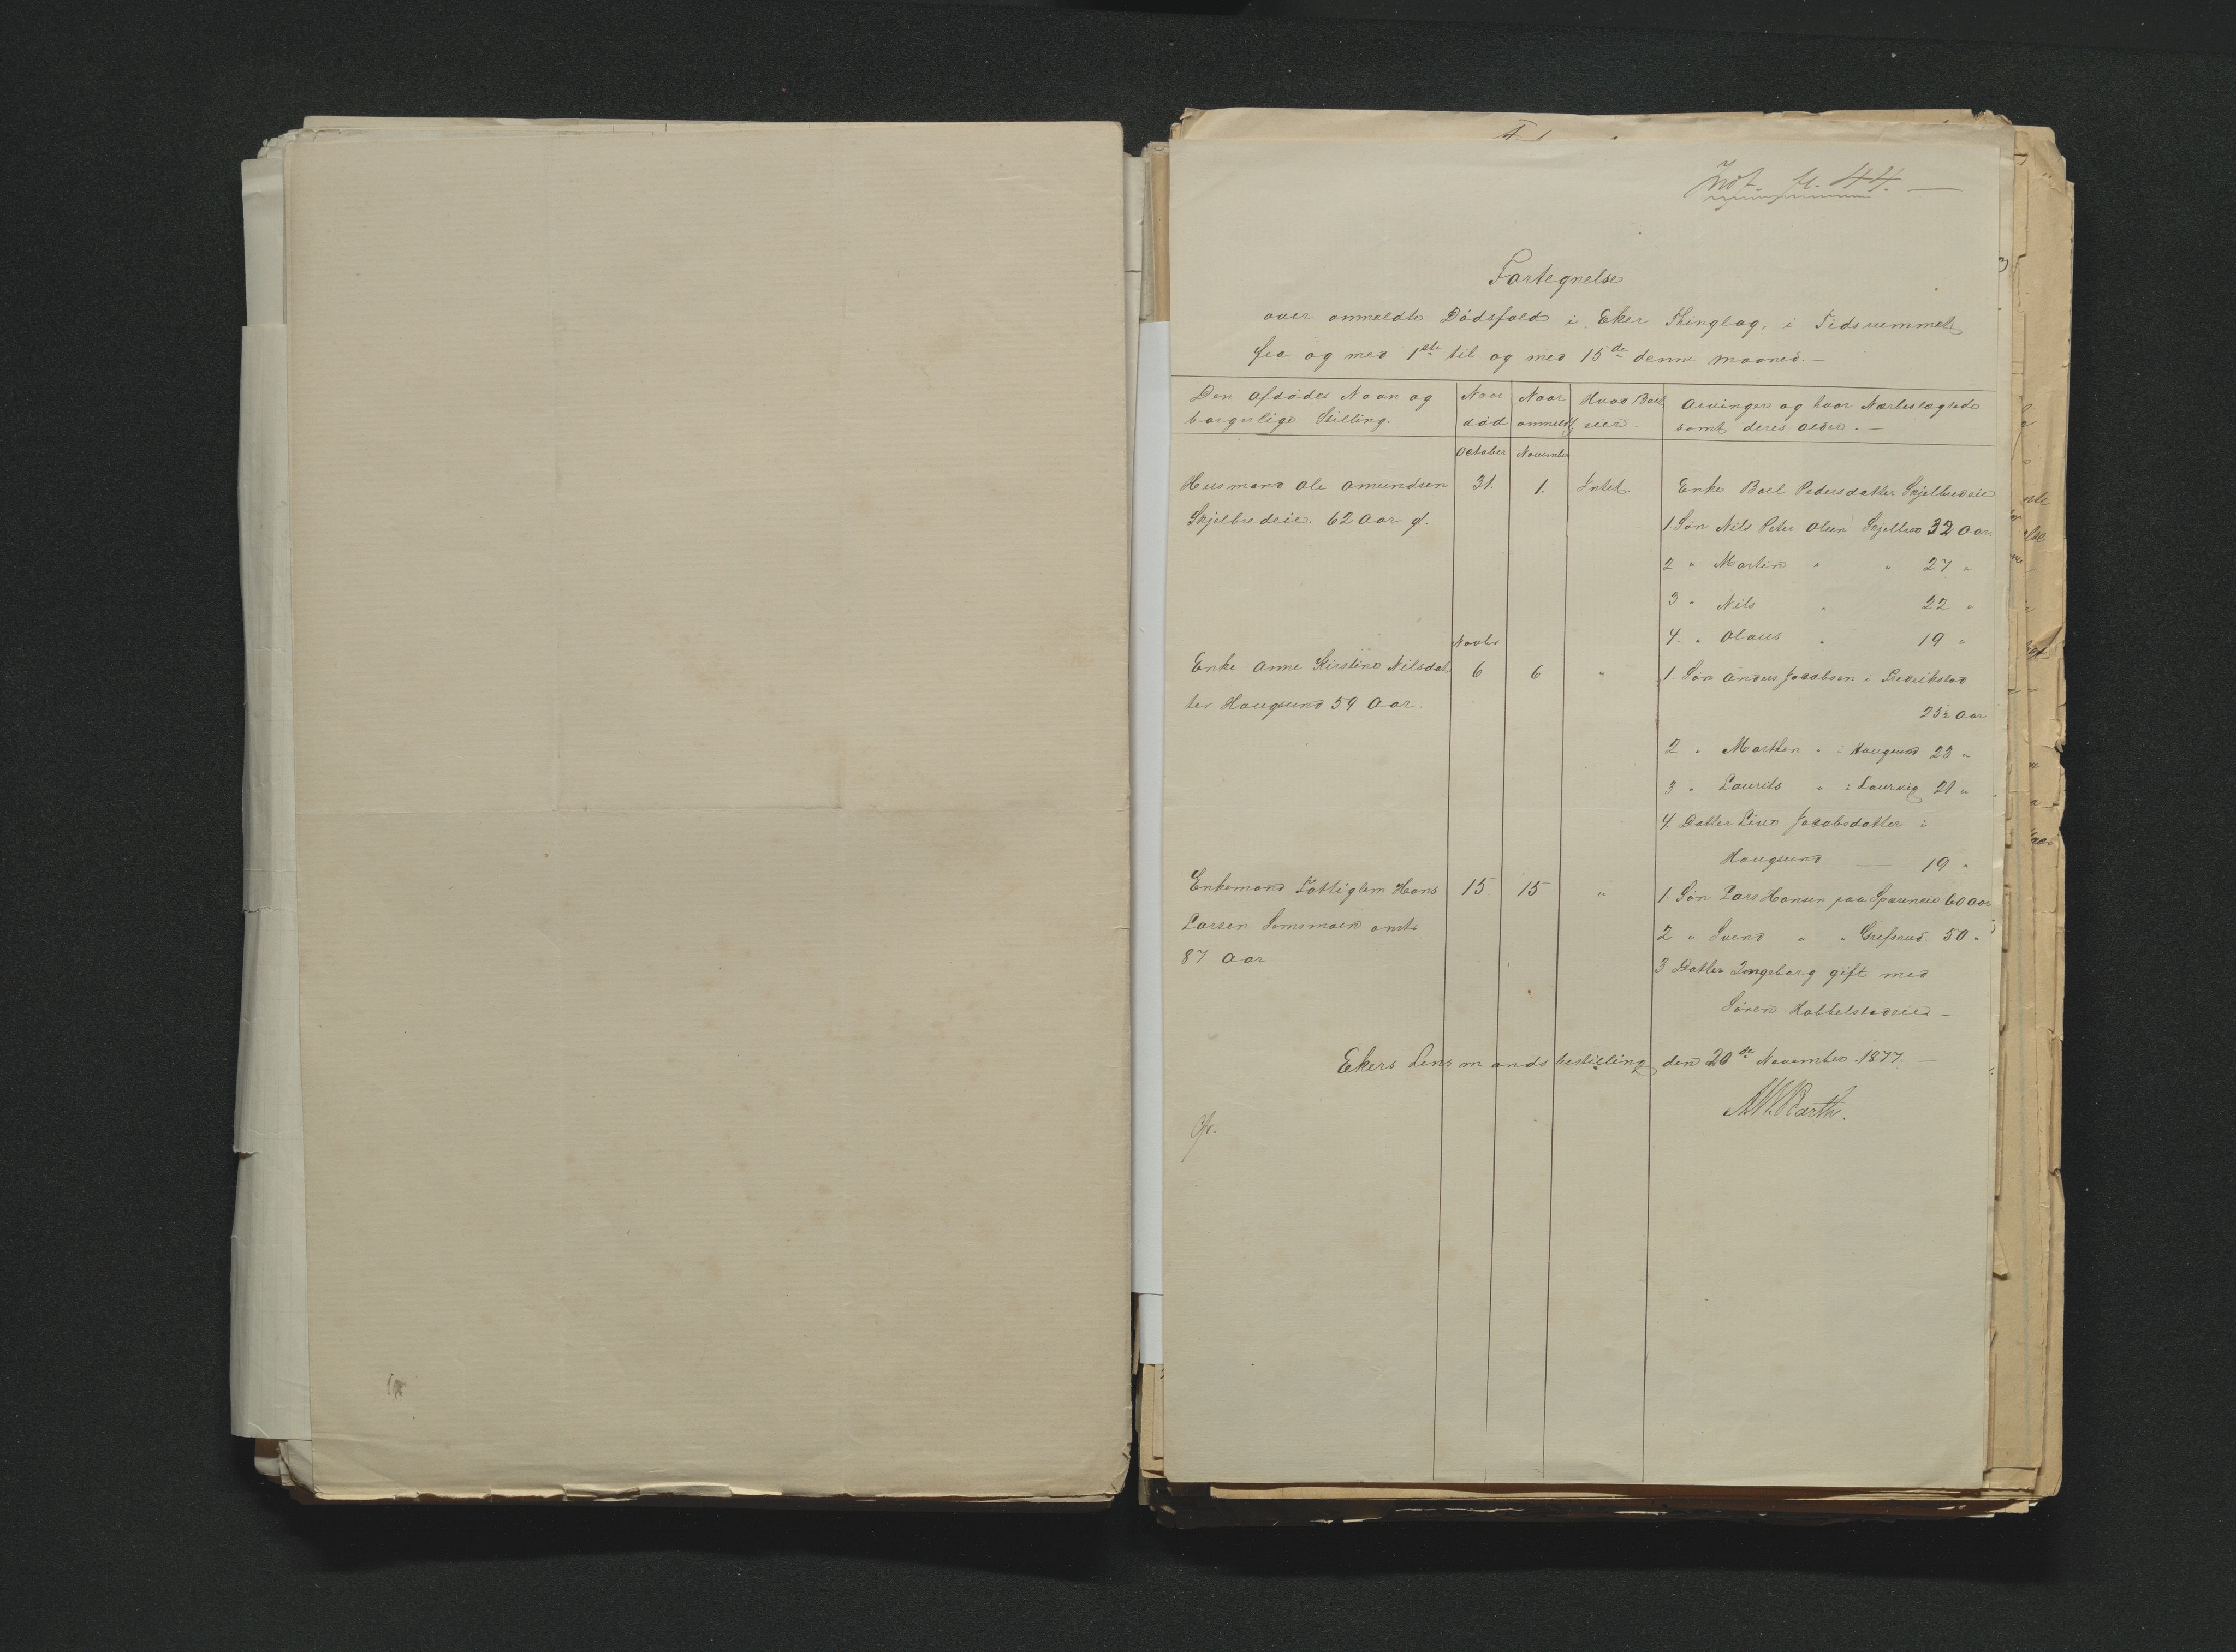 Indf. fl. 44.
Fortegnelse
over anmeldte Dödsfald i Eker Thinglag, i Tidsrummet
fra og med 1ste til og med 15de denne Maaned.
Den afdödes Navn og borgerlige Stilling. Naar död Naar anmeldt Hvad Boet eier. Arvinger og hvor Nærbeslægtede samt deres Alder.
October November
Husmand Ole Amundsen 31. 1. Intet. Enke Boel Pedersdatter Skjelbredeie
Skjelbredeie. 62 Aar gl. 1. Sön Nils Peter Olsen Skjelbred 32 Aar.
2 " Martin " " 27 "
3 " Nils " 22 "
Novbr 4. " Olaus " 19 "
Enke Anne Kirstine Nilsdat 6 6 " 1. Sön Anders Jacobsen i Fredrikstad
ter Hougsund 59 Aar. 25½ Aar
2 " Marthin " i Hougsund 23 "
3 " Laurits " i Laurvig 21 "
4. Datter Live Jacobsdatter i
Hougsund — 19 "
Enkemand Fattiglem Hans 15. 15 " 1. Sön Lars Hansen paa Spæreneie 60 Aar
Larsen Semsmoen 2 " Svend " " Grefsrud. 50 "
87 Aar 3 Datter Ingeborg gift med
Sören Hobbelstadeie
Ekers Lensmandsbestilling den 20de November 1877.
Barth.